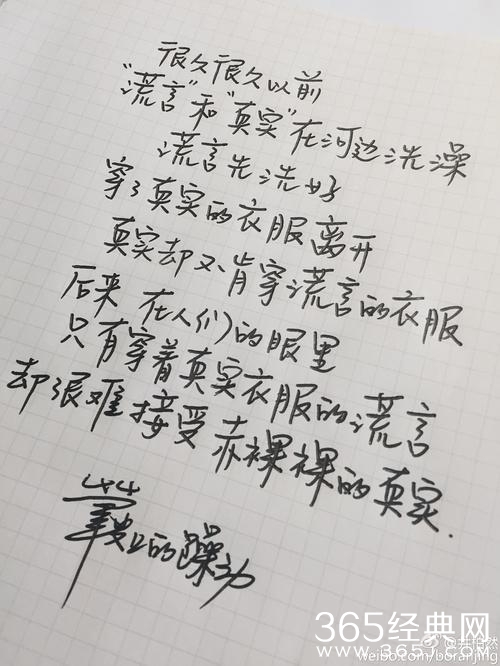 很久很久以前
“谎言”和“真实”在河边洗澡
谎言先洗好
穿了真实的衣服离开
真实却不肯穿谎言的衣服
后来 在人们的眼里
只有穿着真实衣服的谎言
却很难接受赤裸裸的真实.
的躁动
365经典网
www.365j.com
@井柏然
weibo.com/boranjing